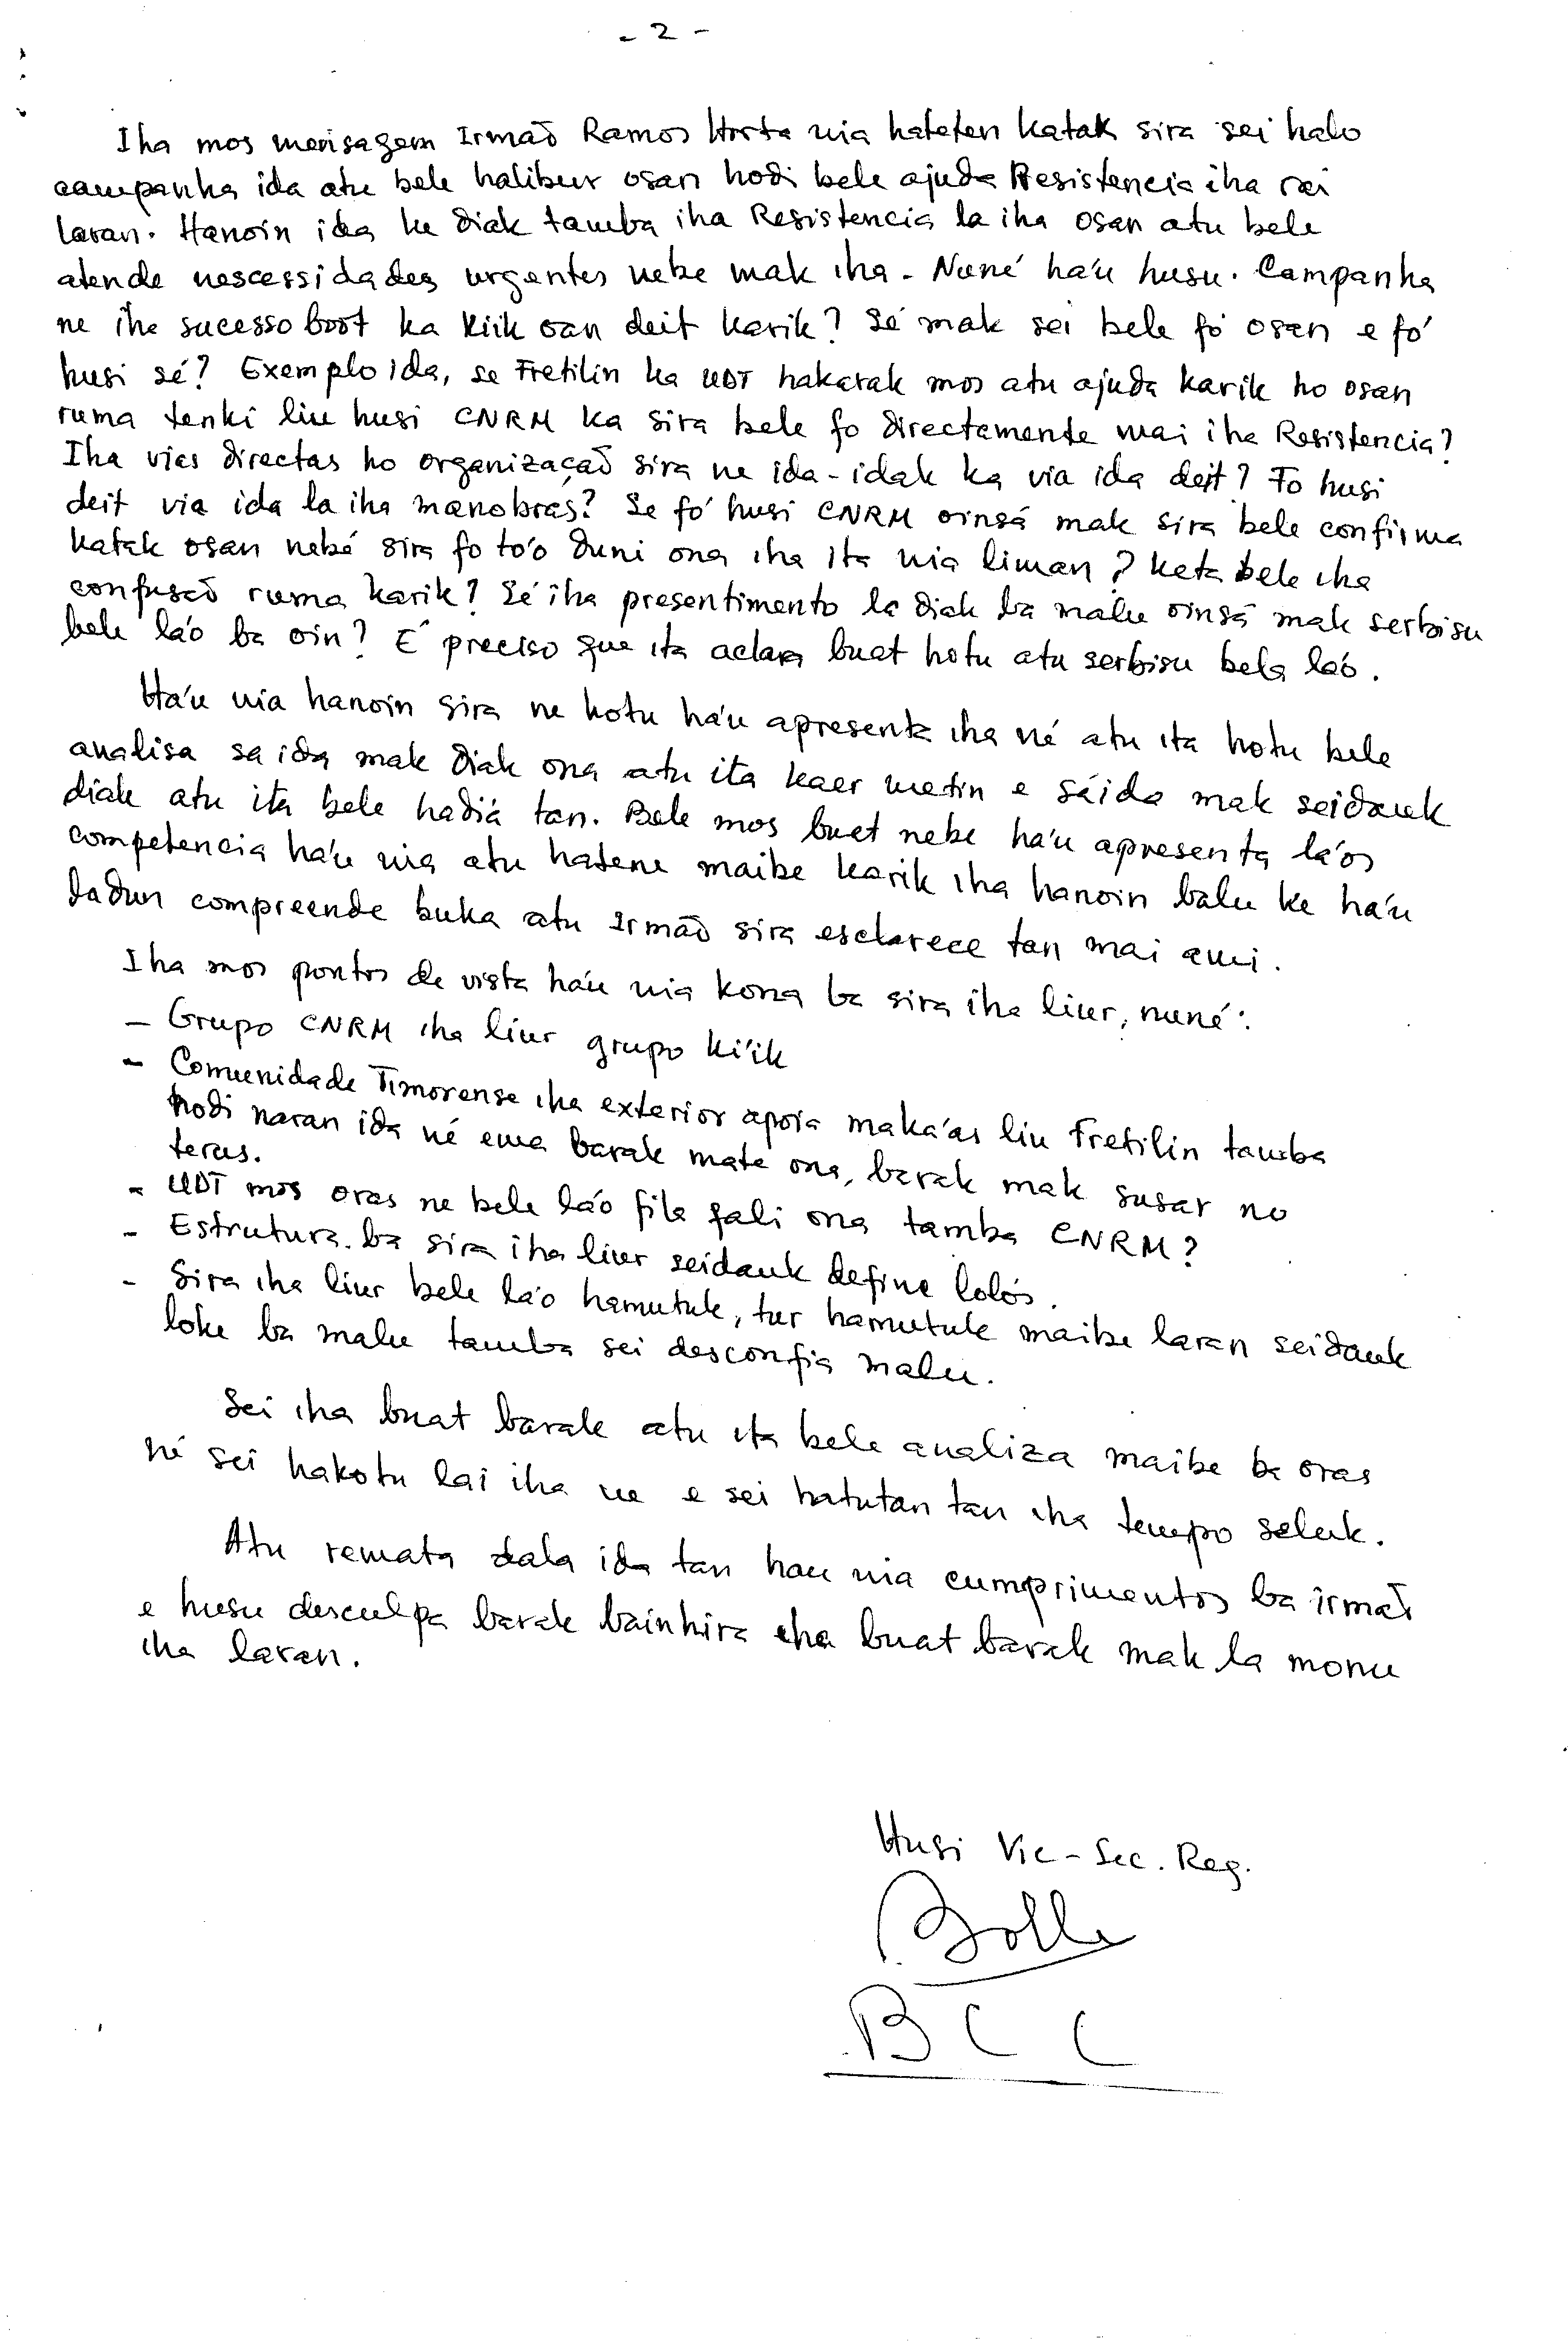 - 2 -
Iha mos mensagem Irmaõ Ramos Horta nia hateten katak sira sei halo
campanha ida atu bele halibur osan hodi bele ajuda Resistencia iha rai
laran. Hanoin ida ke diak tamba iha Resistencia la iha osan atu bele
atende nescessidades urgentes nebe mak iha. Nuné ha'u husu. Campanha
ne iha sucesso boot ka kiik oan deit karik? Sé mak sei bele fó osan e fó
husi sé? Exemplo ida, se Fretilin ka UDT hakarak mos atu ajuda karik ho osan
ruma tenki liu husi CNRM ka sira bele fo directamente mai iha Resistencia?
Iha vias directas ho organizaçaõ sira ne ida-idak ka via ida deit? Fo husi
deit via ida la iha manobras? Se fó husi CNRM oinsá mak sira bele confirma
katak osan nebé sira fo to'o duni ona iha ita nia liman? Keta bele iha
confusaõ ruma karik? Sé iha presentimento la diak ba malu oinsá mak serbisu
bele lá'o ba oin? É preciso que ita aclara buat hotu atu serbisu bele la'o.
Ha'u nia hanoin sira ne hotu ha'u apresenta iha né atu ita hotu bele
analisa sa ida mak diak ona atu ita kaer metin e sáida mak seidauk
diak atu ita bele hadiá tan. Bele mos buat nebe ha'u apresenta lá'os
competencia ha'u nia atu hatene maibe karik iha hanoin balu ke ha'u
ladun compreende buka atu Irmaõ sira esclarece tan mai ami.
Iha mos pontos de vista há'u nia kona ba sira iha liur, nuné:
- Grupo CNRM iha liur grupo ki'ik
- Comunidade Timorense iha exterior apoia maka'as liu Fretilin tamba
hodi naran ida né ema barak mate ona, barak mak susar no
terus.
- UDT mos oras ne bele lá'o fila fali ona tamba CNRM?
- Estrutura ba sira iha liur seidauk define lolós.
- Sira iha liur bele la'o hamutuk, tur hamutuk maibe laran seidauk
loke ba malu tamba sei desconfia malu.
Sei iha buat barak atu ita bele analiza maibe ba oras
né sei hakotu lai iha ne e sei hatutan tan iha tempo seluk.
Atu remata dala ida tan hau nia cumprimentos ba irmaõ
e husu desculpa barak bainhira iha buat barak mak la monu
iha laran.
Husi Vic-Sec. Reg.
BCC